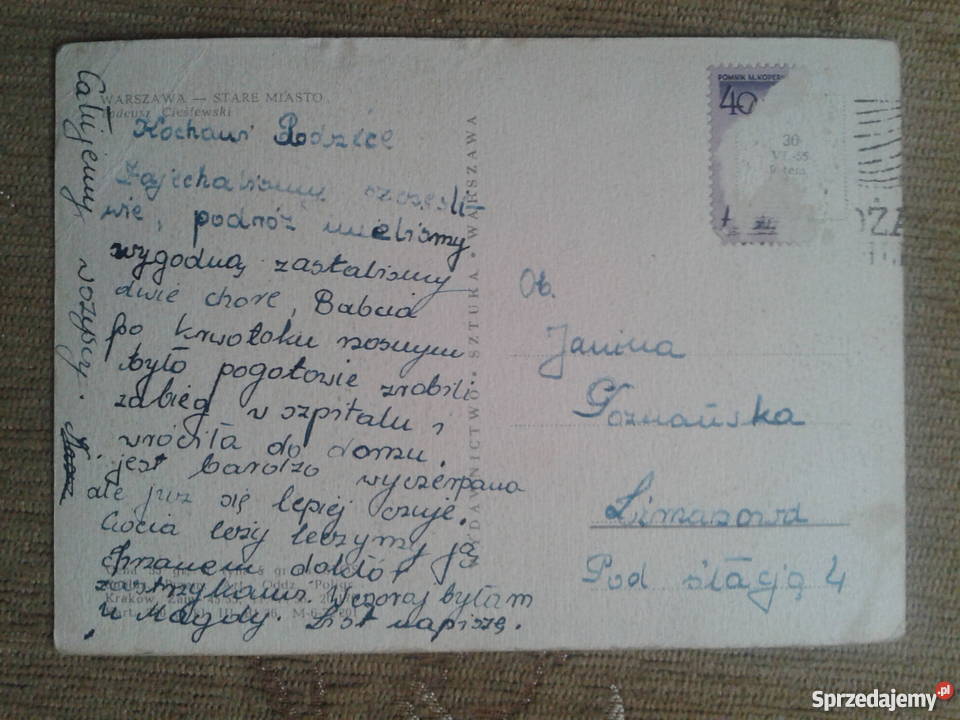 WARSZAWA — STARE MIASTO
Tadeusz Cieślewski
Kochani Rodzice
Zajechaliśmy szczęśli-
wie, podróż mieliśmy
wygodną zastaliśmy
dwie chore, Babcia
po krwotoku nosnym
było pogotowie zrobili
zabieg w szpitalu i
wróciła do domu.
jest bardzo wyczerpana
ale już się lepiej czuje.
Ciocia leży leczymy ją
doktór
zastrzykami. Wczoraj byłam
u Magdy. List napiszę.
Całujemy wszyscy.
WYDAWNICTWO • SZTUKA • WARSZAWA
POMNIK M.KOPER
40
30
VI.-55
Ob.
Janina
Poznańska
Limanowa
Pod stacją 4
Sprzedajemy.pl